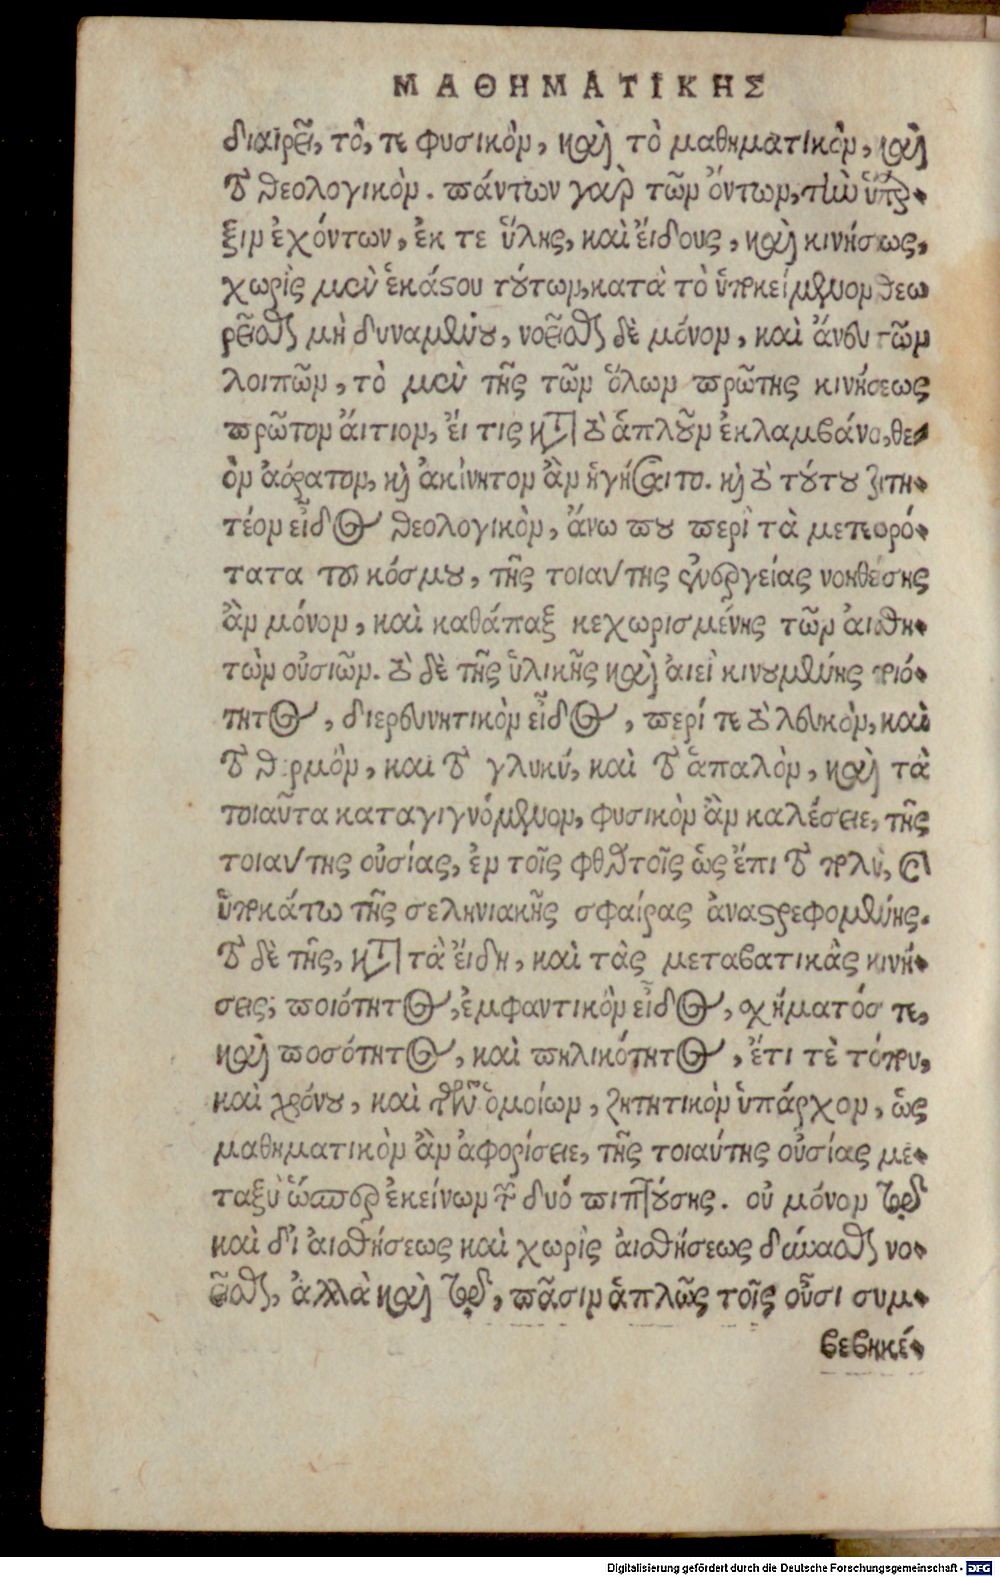 ΜΑΘΗΜΑΤΙΚΗΣ
διαιρεῖ, τὸ, τε φυσικὸν, καὶ τὸ μαθηματικὸν, καὶ
τὸ θεολογικὸν. πάντων γαρ τῶν ὄντων, τὴν ὕπαρ-
ξιν ἐχόντων, ἐκ τε ὕλης, καὶ εἴδους, καὶ κινήσεως,
χωρὶς μὲν ἑκάστου τούτων, κατὰ τὸ ὑποκείμενον θεω
ρεῖσθαι μὴ δυναμένου, νοεῖσθαι δὲ μόνον, καὶ ἄνευ τῶν
λοιπῶν, τὸ μὲν τῆς τῶν ὅλων πρῶτης κινήσεως
πρῶτον ἄιτιον, ἔι τις κατὰ τὸ ἁπλοῦν ἐκλαμβάνοι, θε-
ὸν ἀόρατον, καὶ ἀκίνητον ἂν ἡγήσαιτο. καὶ τὸ τούτου ζητη-
τέον εἶδος θεολογικὸν, ἄνω που περὶ τὰ μετεωρό-
τατα του κόσμου, τῆς τοιαύτης ἐνεργείας νοηθείσης
ἂν μόνον, καὶ καθάπαξ κεχωρισμένης τῶν ἀισθη-
τὼν οὐσιῶν. τὸ δὲ τῆς ὑλικῆς καὶ ἀιεὶ κινουμένης ποιό-
τητος, διερευνητικὸν εἶδος, περί τε τὸ λευκὸν, καὶ
τὸ θερμὸν, καὶ τὸ γλυκύ, καὶ τὸ ἁπαλὸν, καὶ τὰ
τοιαῦτα καταγιγνόμενον, φυσικὸν ἂν καλέσειε, τῆς
τοιαύτης οὐσίας, ἐν τοῖς φθαρτοῖς ὡς ἔπι τὸ πολὺ, καὶ
ὑποκάτω τῆς σεληνιακῆς σφαίρας ἀναστρεφομένης.
τὸ δὲ τῆς, κατὰ τὰ ἔιδη, καὶ τὰς μεταβατικὰς κινή-
σεις, ποιότητος, ἐμφαντικὸν εἶδος, σχήματός τε,
καὶ ποσότητος, καὶ πηλικότητος, ἔτι τὲ τόπου,
καὶ χρόνου, καὶ τῶν ὁμοίων, ζητητικὸν ὑπάρχον, ὡς
μαθηματικὸν ἂν ἀφορίσειε, τῆς τοιαύτης οὐσίας με-
ταξὺ ὥσπερ ἐκείνων τῶν δυό πιπτούσης. οὐ μόνον τῷ
καὶ δι ἀισθήσεως καὶ χωρὶς ἀισθήσεως δύνασθαι νο-
εῖσθαι, ἀλλὰ καὶ τῷ, πᾶσιν ἁπλῶς τοῖς οὖσι συμ-
βεβηκέ-
Digitalisierung gefördert durch die Deutsche Forschungsgemeinschaft - DFG